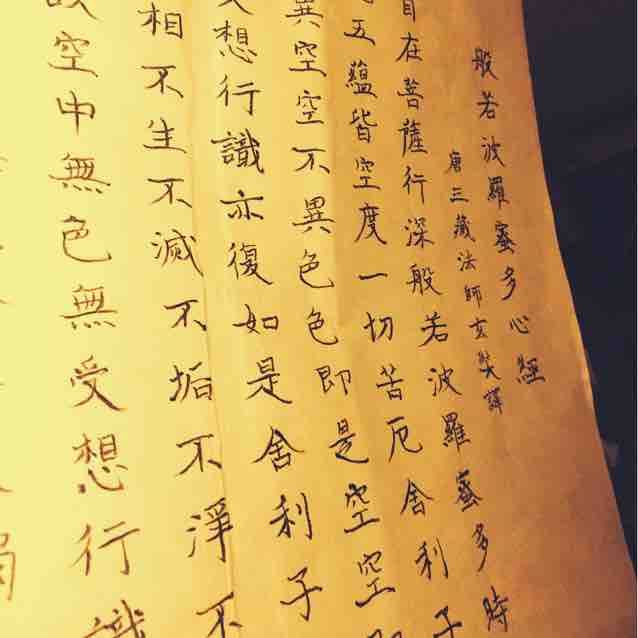 般若波羅蜜多心經
唐三藏法師玄奘譯
自在菩薩行深般若波羅蜜多時
五蘊皆空度一切苦厄舍利子
異空空不異色色即是空空
受想行識亦復如是舍利子
相不生不滅不垢不淨不
故空中無色無受想行識